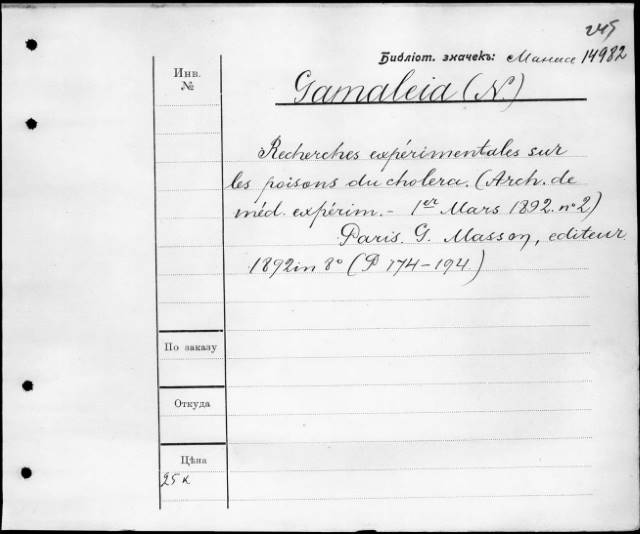 245
Библіот. значекъ: 14982
Инв.
№
Gamaleia (N.)
Recherches expérimentales sur
les poisons du cholera. (Arch. de
méd. expérim. - 1er Mars 1892. nº 2)
Paris. G. Masson, editeur
1892 in 8º (P 174-194)
По заказу
Откуда
Цѣна
25 к